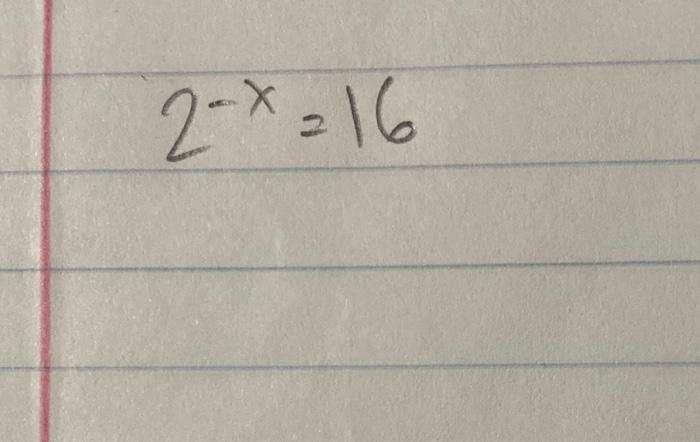 2^{-x} = 16